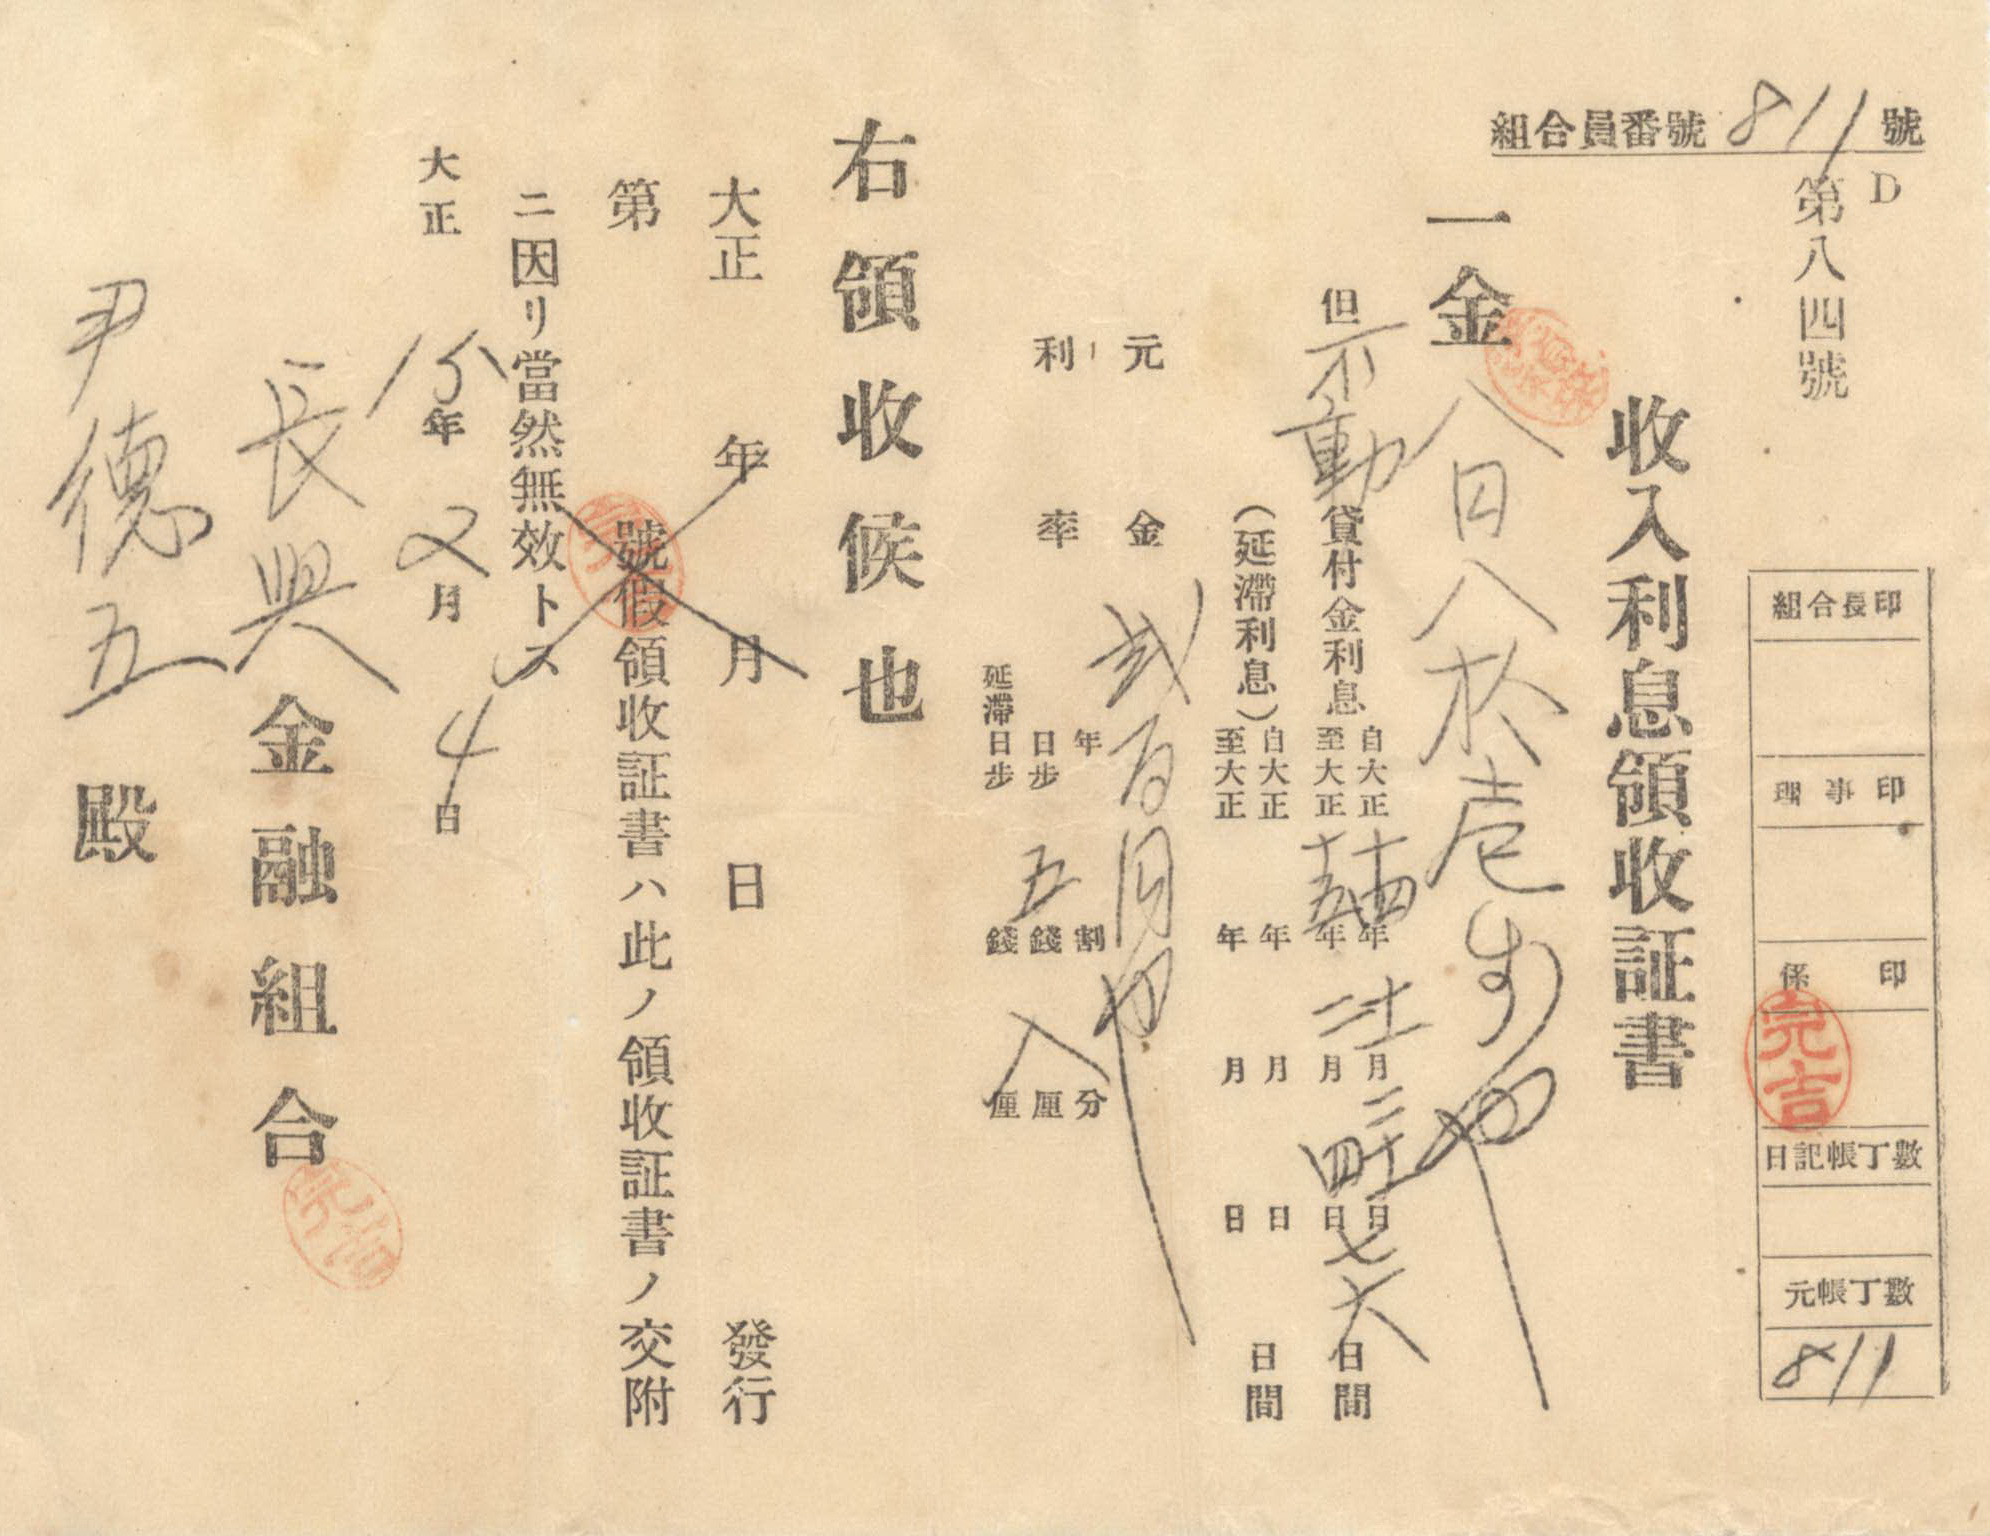 組合員番號 811 號
D
第八四號
收入利息領收証書
一金八円八拾壱銭也
但不動貸付金利息 自大正十四年十二月二十日 至大正十五年二月四日 七六日間
(延滯利息) 自大正 年 月 日 至大正 年 月 日 日間
元金 貳百円也
利率 年 割 分
日步 五錢 厘
延滯日步 錢 厘
右領收候也
大正 年 月 日 發行
第 號假領收証書ハ此ノ領收証書ノ交附
ニ因リ當然無效トス
大正15年2月4日
長興金融組合
尹德五殿
組合長印
理事印
係印
完吉
日記帳丁數
元帳丁數
811